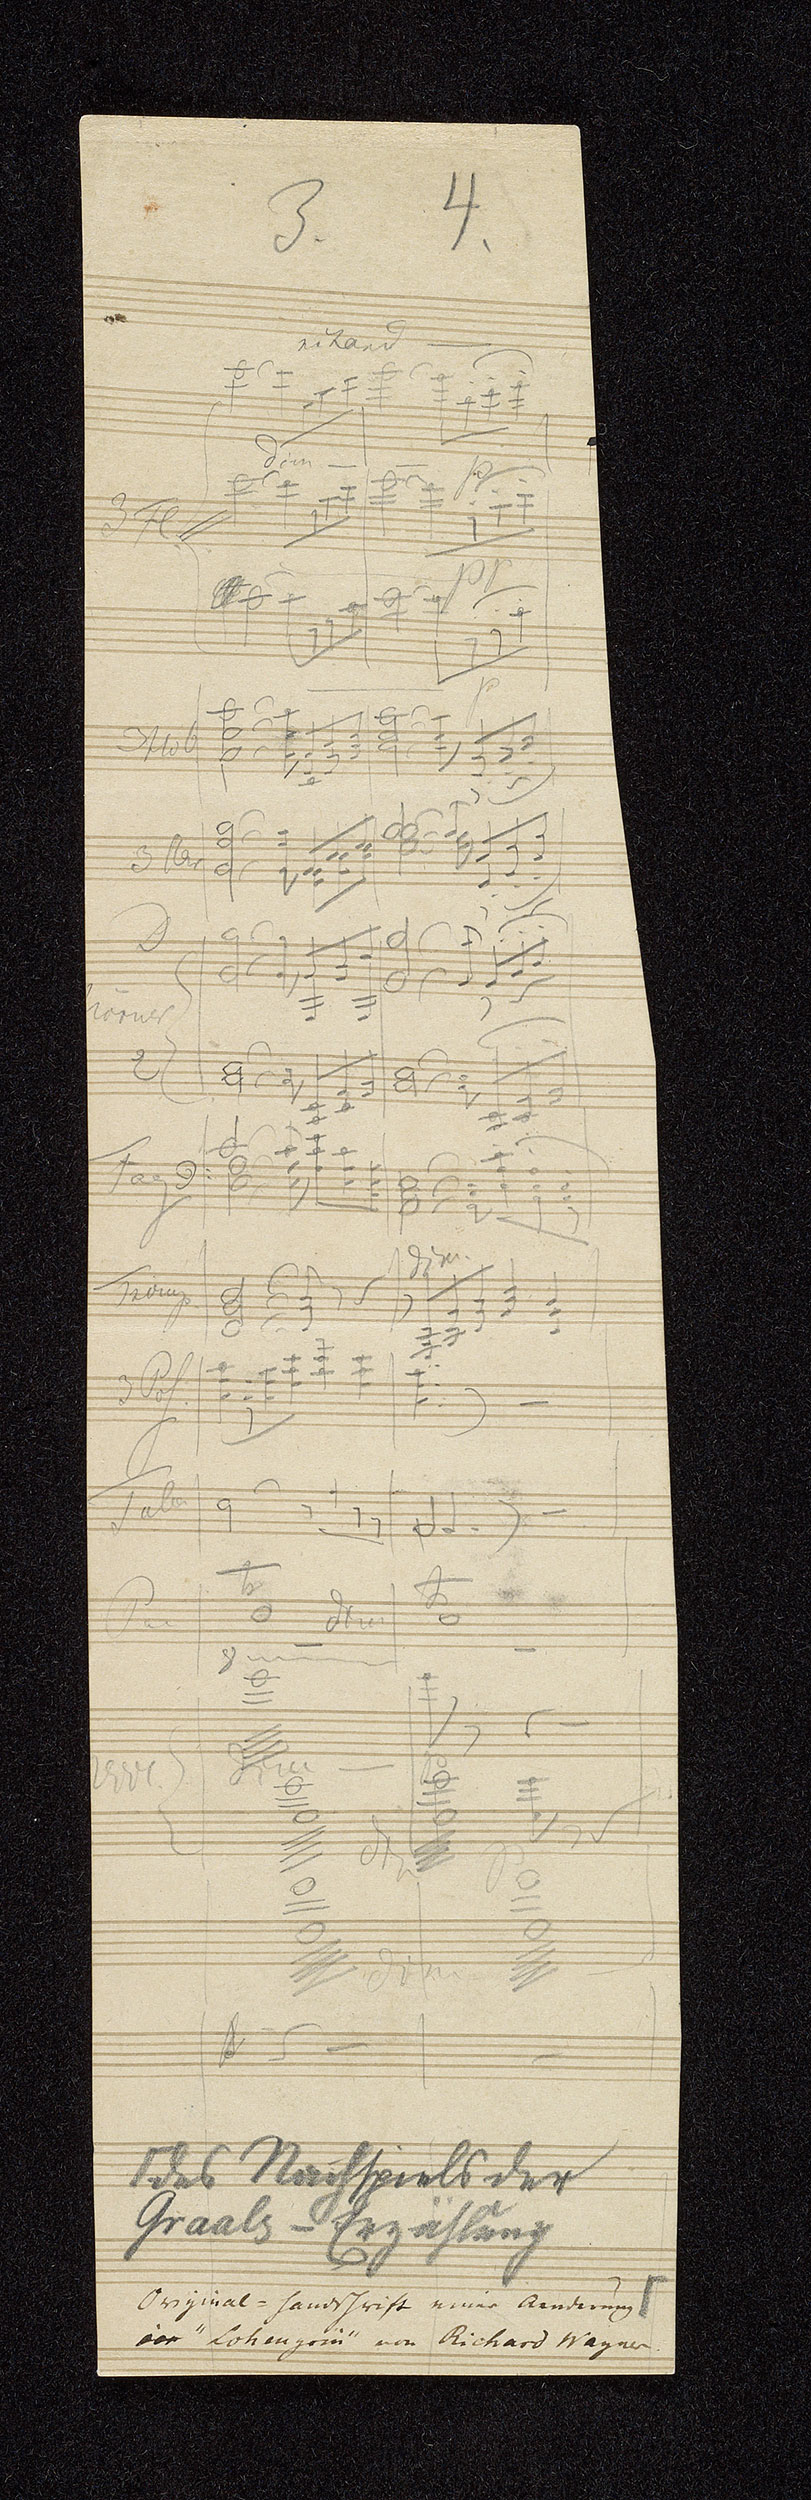 3. 4.
ritard
dim
p
3 Fl
pp
p
3 Hob
3 Clar
D
Hörner
2
Fag
dim.
Tromp.
3 Pos.
Tuba
tr tr
dim
8
dim
dim
p
dim
des Nachspiels der
Graals-Erzählung
Original-Handschrift einer Aenderung
"Lohengrin" von Richard Wagner.